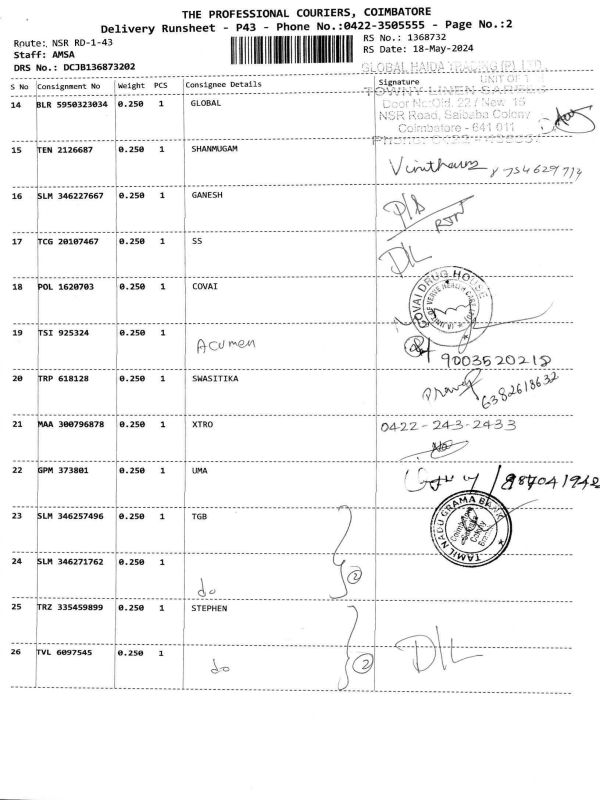 THE PROFESSIONAL COURIERS, COIMBATORE
Delivery Runsheet - P43 - Phone No.:0422-3505555 - Page No.:2
Route: NSR RD-1-43
RS No.: 1368732
Staff: AMSA
RS Date: 18-May-2024
DRS No.: DCJB136873202
GLOBAL HAIDA TRADING (P) LTD
S No Consignment No Weight PCS Consignee Details Signature
UNIT OF
14 BLR 5950323034 0.250 1 GLOBAL
Door No:Old. 22 / New. 15
NSR Road, Saibaba Colony
Coimbatore - 641 011
15 TEN 2126687 0.250 1 SHANMUGAM
16 SLM 346227667 0.250 1 GANESH
17 TCG 20107467 0.250 1 SS
D/L
18 POL 1620703 0.250 1 COVAI
COVAI DRUG HOUSE
19 TSI 925324 0.250 1
Acumen
9003520218
20 TRP 618128 0.250 1 SWASITIKA
6382618632
21 MAA 300796878 0.250 1 XTRO 0422-243-2433
22 GPM 373801 0.250 1 UMA
23 SLM 346257496 0.250 1 TGB
TAMIL NADU GRAMA BANK
Coimbatore
Colony
24 SLM 346271762 0.250 1
do
2
25 TRZ 335459899 0.250 1 STEPHEN
26 TVL 6097545 0.250 1
do
2
D/L